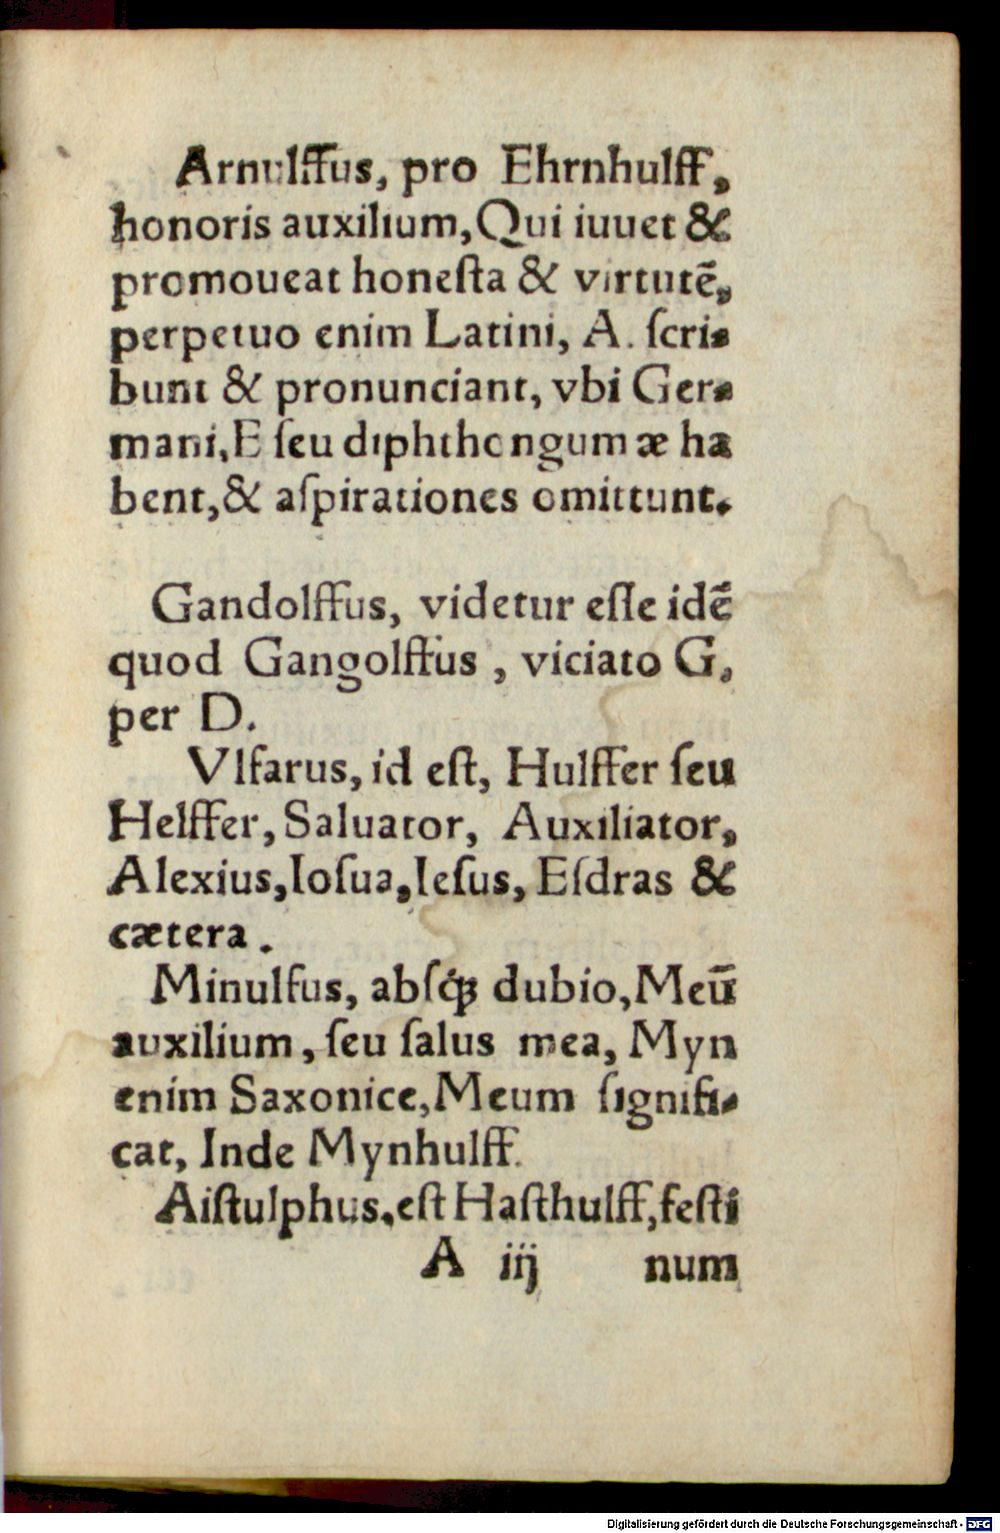 Arnulffus, pro Ehrnhulff,
honoris auxilium, Qui iuuet &
promoueat honeſta & virtutē,
perpetuo enim Latini, A. ſcri-
bunt & pronunciant, vbi Ger-
mani, E ſeu diphthongum æ ha
bent, & aſpirationes omittunt.
Gandolffus, videtur eſſe idē
quod Gangolffus, viciato G,
per D.
Vlfarus, id eſt, Hulffer ſeu
Helffer, Saluator, Auxiliator,
Alexius, Ioſua, Ieſus, Eſdras &
cætera.
Minulfus, abſq́ꝫ dubio, Meū
auxilium, ſeu ſalus mea, Myn
enim Saxonice, Meum ſignifi-
cat, Inde Mynhulff.
Aiſtulphus, eſt Haſthulff, feſti
A iij num
Digitalisierung gefördert durch die Deutsche Forschungsgemeinschaft - DFG